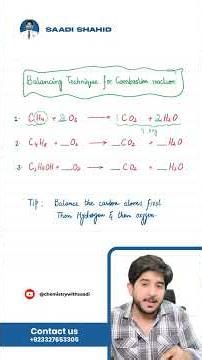 SAADI SHAHID
Balancing Technique for Combustion reaction
1. CH4 + 2 O2 → 1 CO2 + 2 H2O
2. C4H8 + _ O2 → _ CO2 + _ H2O
3. C2H5OH + _ O2 → _ CO2 + _ H2O
Tip : Balance the carbon atoms first
Then Hydrogen & then oxygen
@chemistrywithsaadi
Contact us
+923327653306